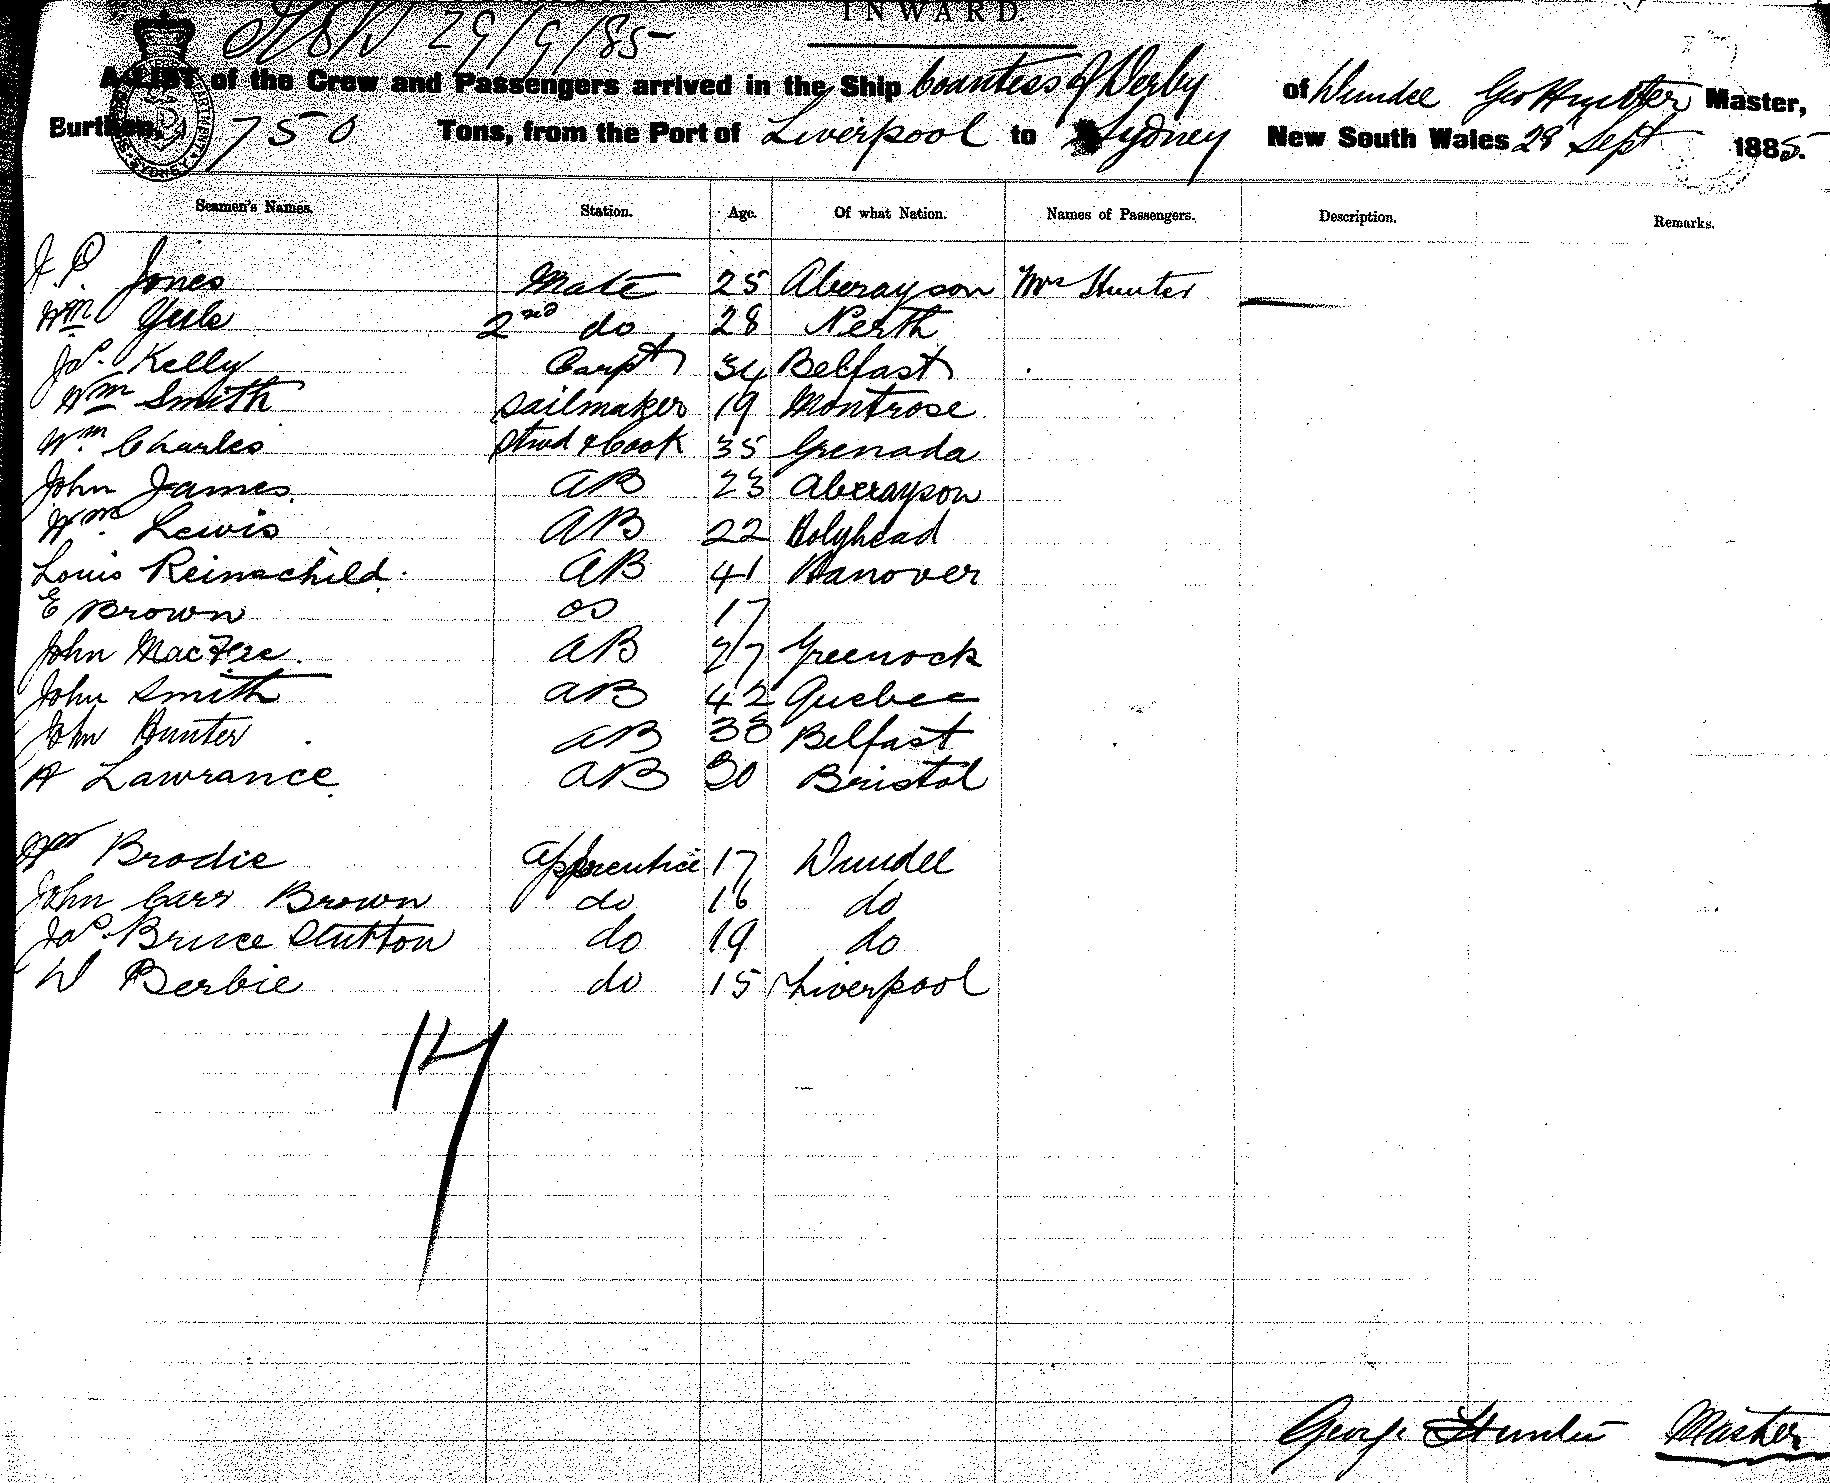 INWARD.
29/9/85
A LIST of the Crew and Passengers arrived in the Ship Countess of Derby of Dundee Geo Hunter Master,
Burthen, 750 Tons, from the Port of Liverpool to Sydney New South Wales 28 Sept 1885.
Seamen's Names. Station. Age. Of what Nation. Names of Passengers. Description. Remarks.
J. P. Jones Mate 25 Aberayson Mrs Hunter
Wm Yule 2nd do 28 Perth
Jas. Kelly Carpt 34 Belfast
Wm Smith Sailmaker 19 Montrose
Wm. Charles Stwd & Cook 35 Grenada
John James. AB 23 Aberayson
Wm. Lewis AB 22 Holyhead
Louis Reinschild. AB 41 Hanover
E Brown OS 17
John MacFee. AB 27 Greenock
John Smith AB 42 Quebec
John Hunter AB 38 Belfast
A Lawrance. AB 30 Bristol
Wm Brodie Apprentice 17 Dundee
John Carr Brown do 16 do
Jas. Bruce Stutton do 19 do
W Berbie do 15 Liverpool
17
George Hunter Master